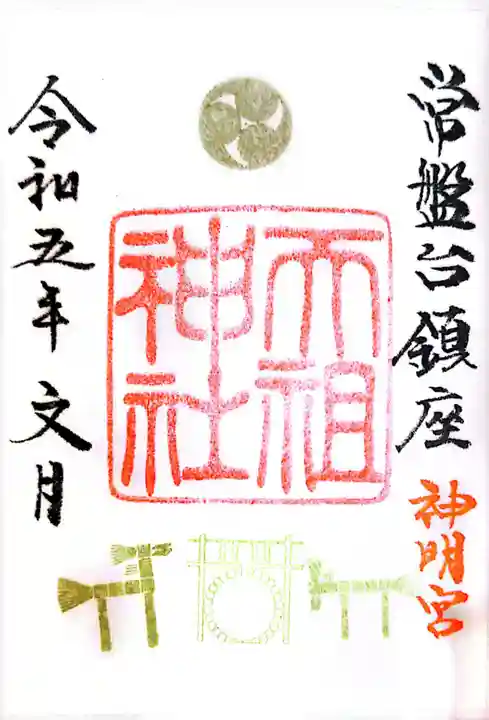 常盤台鎮座
神明宮
天祖
神社
令和五年文月